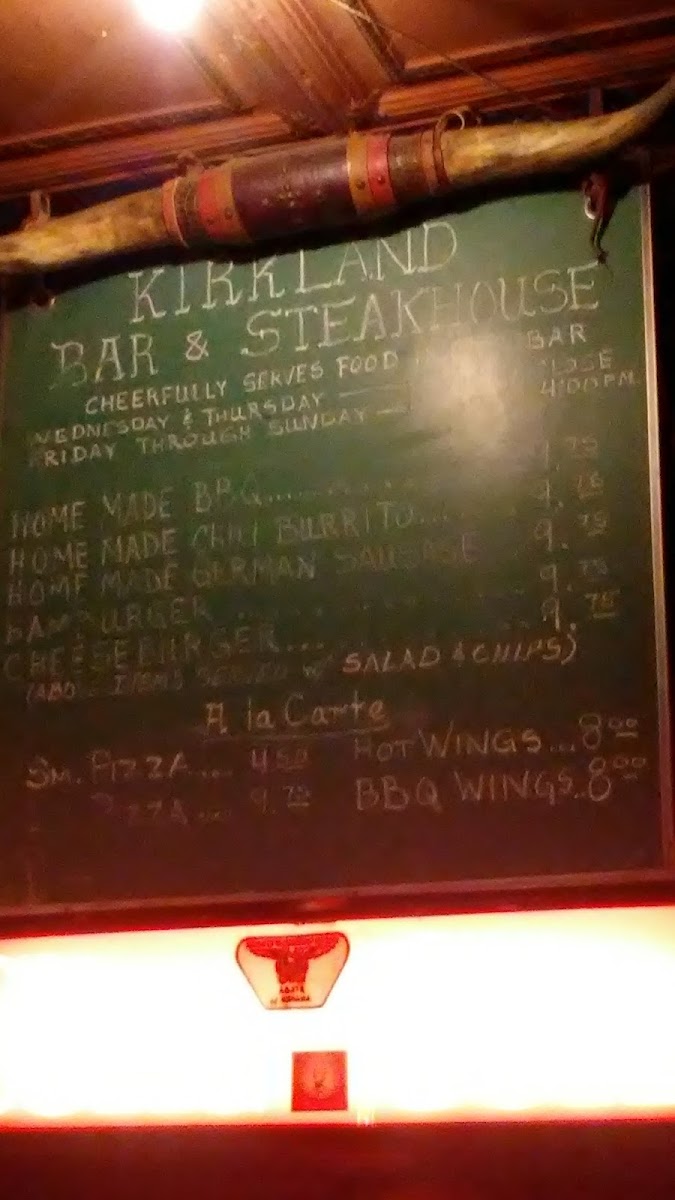 KIRKLAND
BAR & STEAKHOUSE
CHEERFULLY SERVES FOOD BAR
WEDNESDAY & THURSDAY CLOSE
FRIDAY THROUGH SUNDAY 4:00 PM
HOME MADE BBQ.......... 9.75
HOME MADE CHILI BURRITO.... 9.75
HOME MADE GERMAN SAUSAGE 9.75
HAMBURGER .......... 9.75
CHEESEBURGER... 9.75
(ABOVE ITEMS SERVED W/ SALAD & CHIPS)
A la Carte
SM. PIZZA.... 4.50 HOT WINGS...8.00
PIZZA.... 9.75 BBQ WINGS..8.00